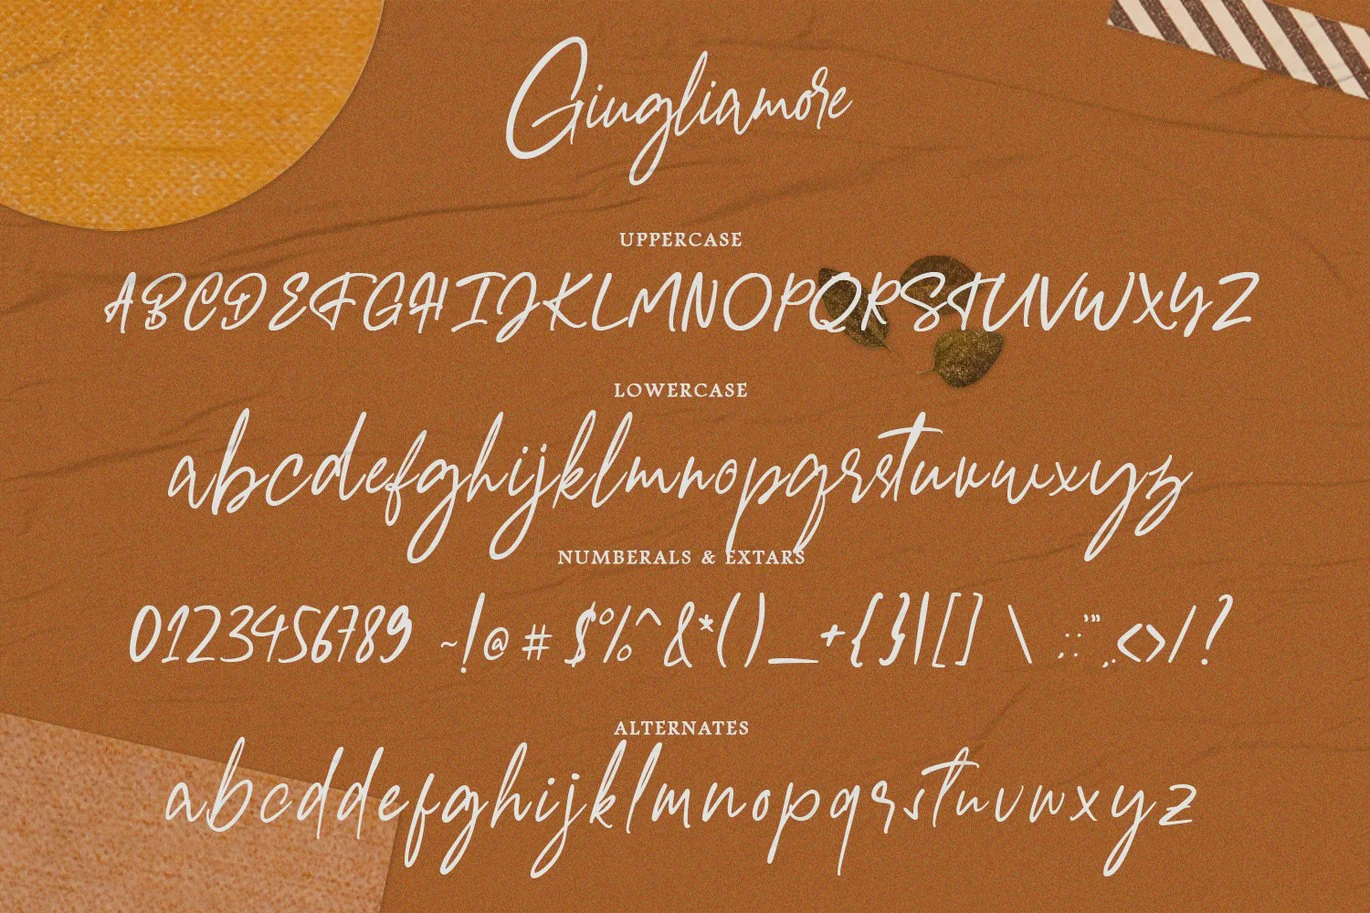 Giugliamore
UPPERCASE
ABCDEFGHIJKLMNOPQRSTUVWXYZ
LOWERCASE
abcdefghijklmnopqrstuvwxyz
NUMBERALS & EXTARS
0123456789 ~!@# $%^&*()_+{}|[] \ :;'",.<>/?
ALTERNATES
abcddefghijklmnopqrstuvwxyz